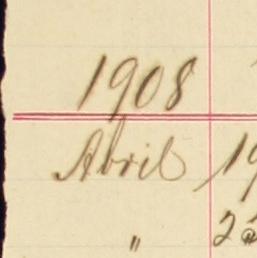 1908
Abril 19
" 25